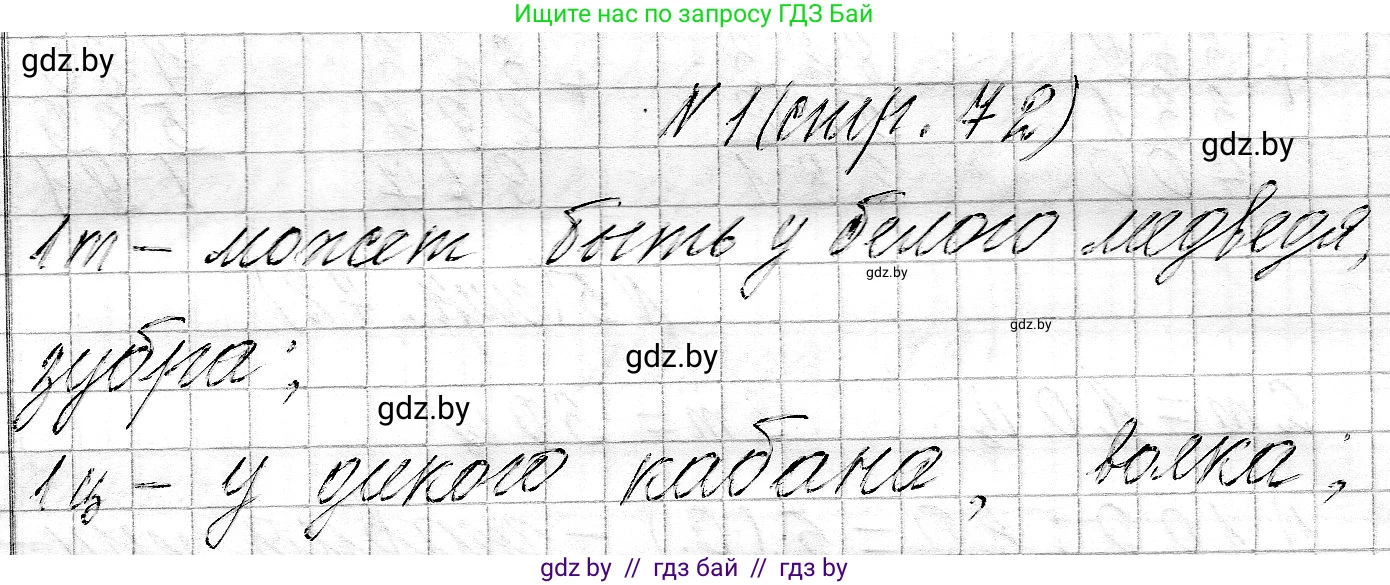 Ищите нас по запросу ГДЗ Бай
gdz.by
№ 1 (стр. 72)
gdz.by
1т – может быть у белого медведя,
gdz.by
gdz.by
зубра;
gdz.by
gdz.by
1ц – у дикого кабана, волка;
gdz.by // гдз бай // gdz by